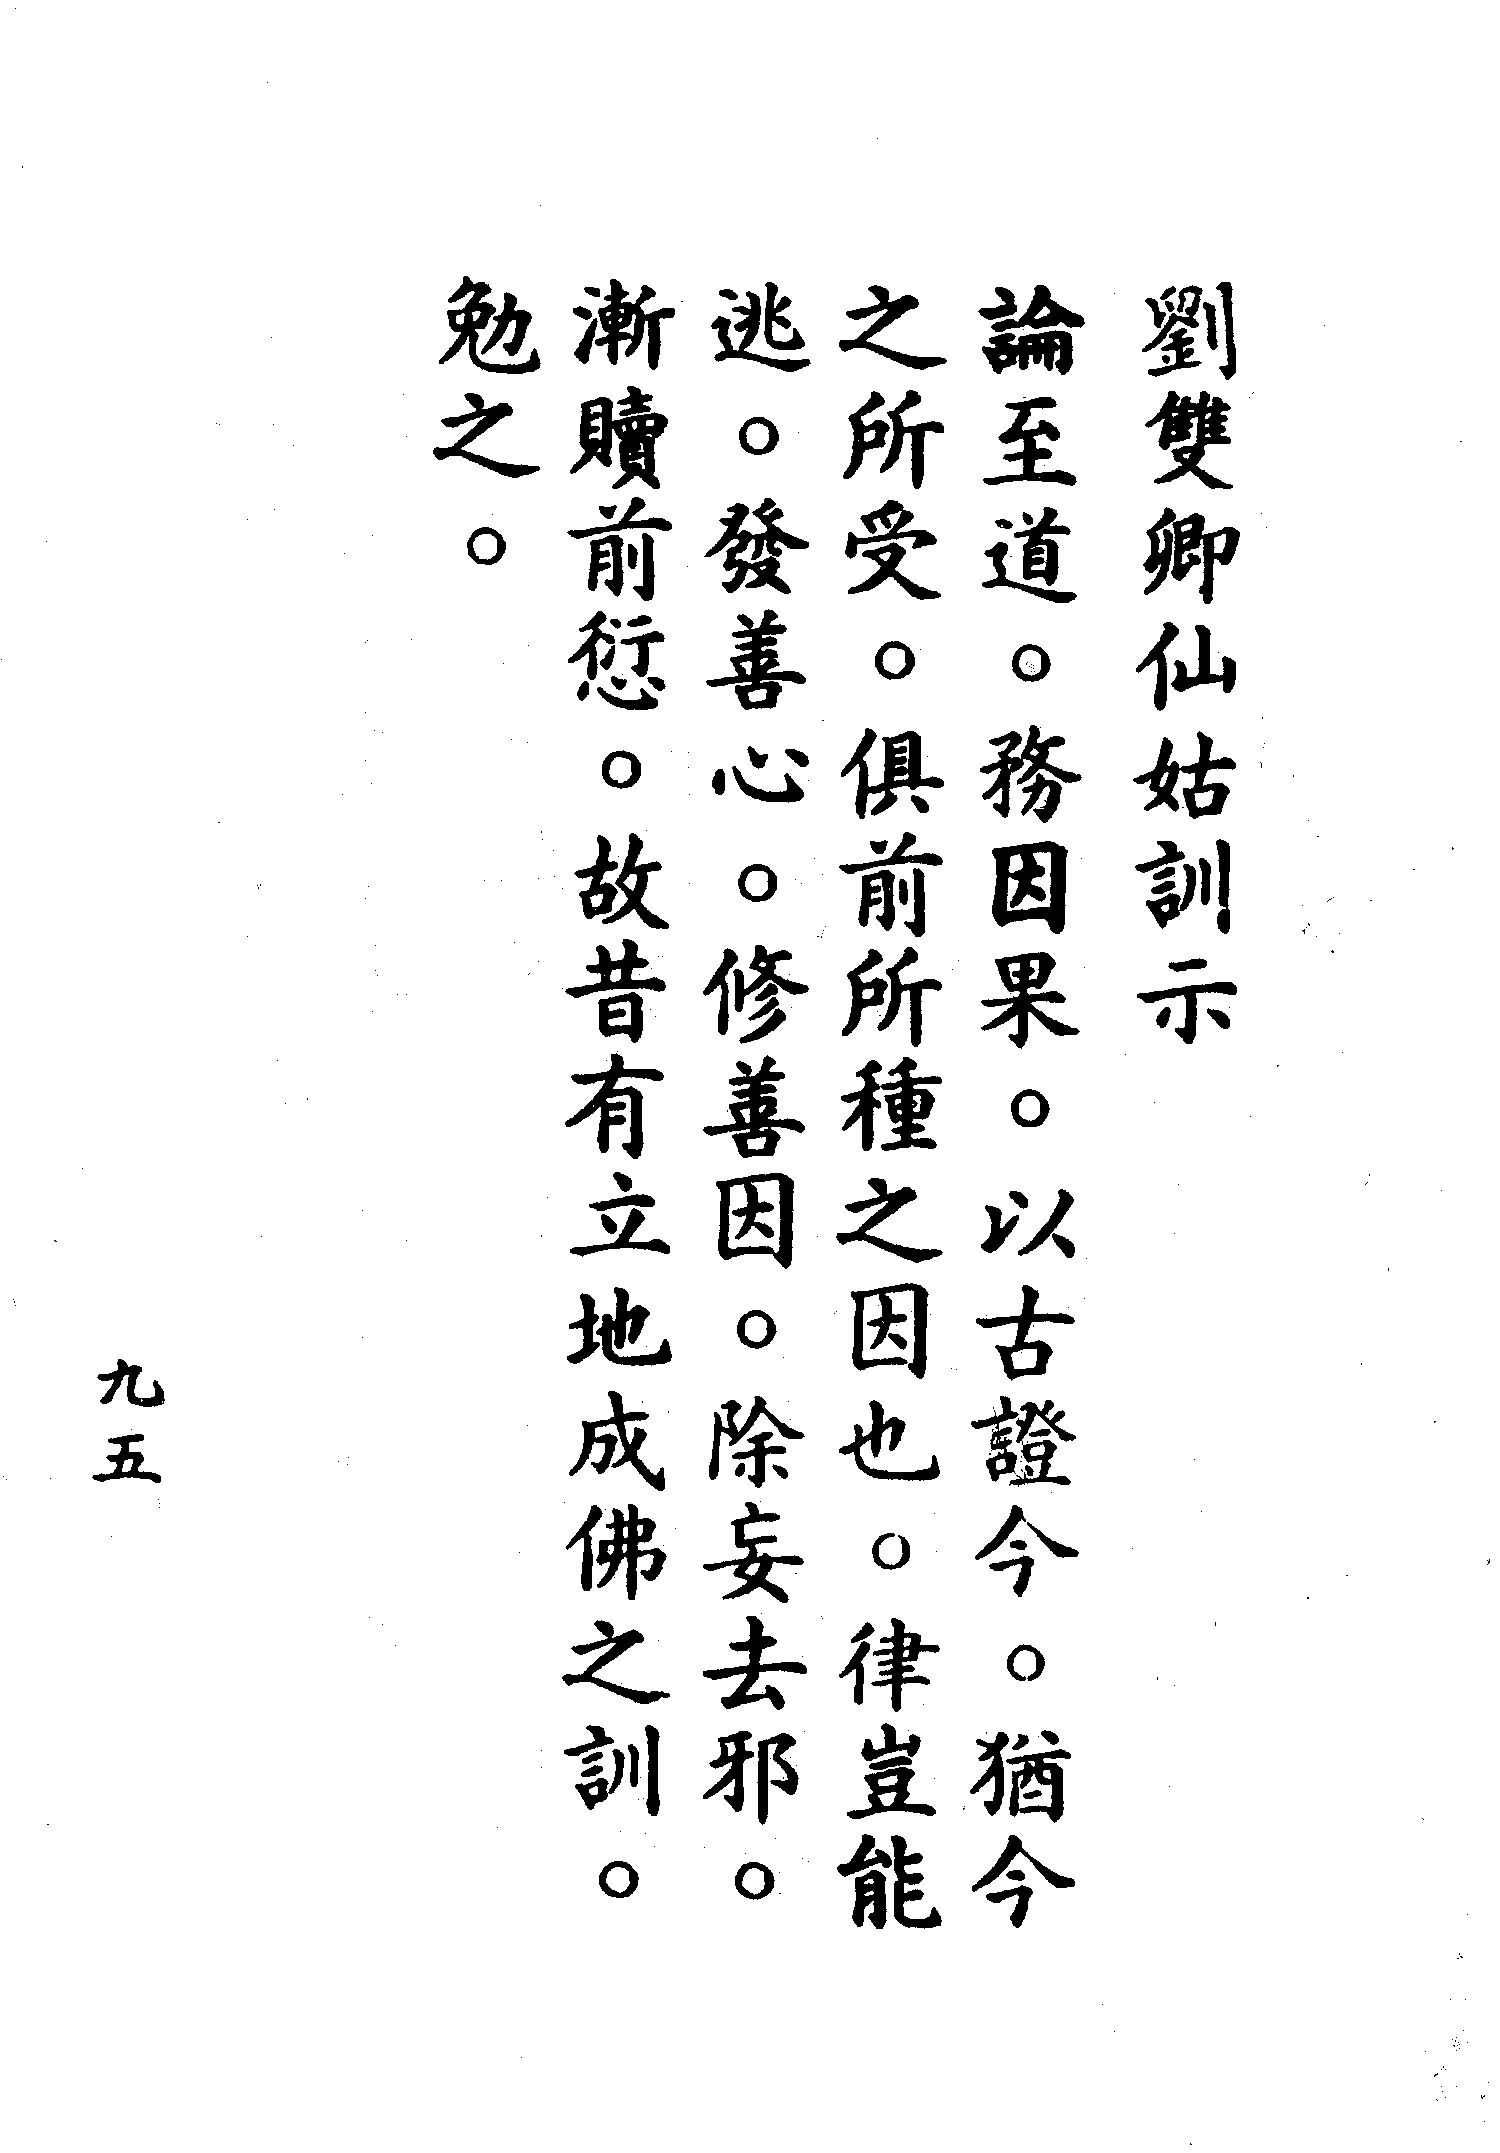 劉雙卿仙姑訓示
論至道。務因果。以古證今。猶今
之所受。俱前所種之因也。律豈能
逃。發善心。修善因。除妄去邪。
漸贖前愆。故昔有立地成佛之訓。
勉之。
九五